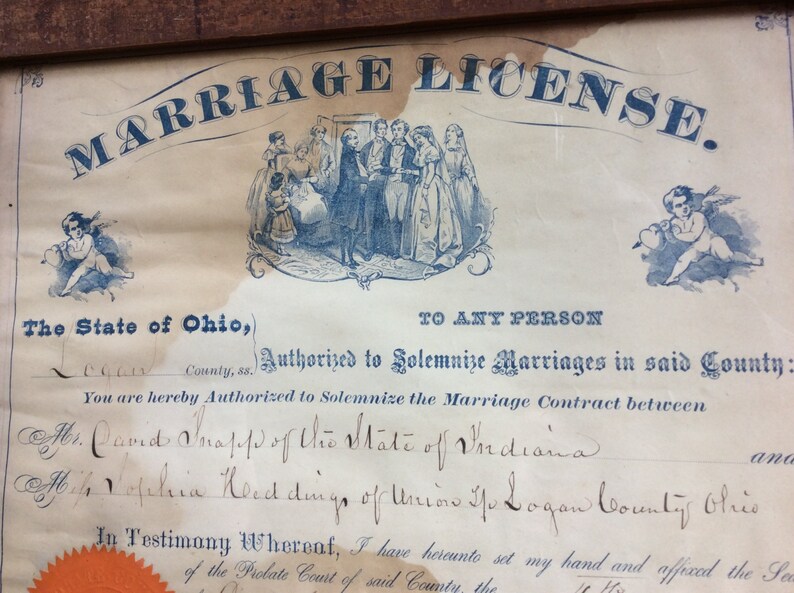 MARRIAGE LICENSE.
The State of Ohio,
Logan County, ss.
TO ANY PERSON
Authorized to Solemnize Marriages in said County:
You are hereby Authorized to Solemnize the Marriage Contract between
Mr. David Snapp of the State of Indiana and
Miss Sophia Heddings of Union Tp Logan County Ohio
In Testimony Whereof, I have hereunto set my hand and affixed the Sea
of the Probate Court of said County, the